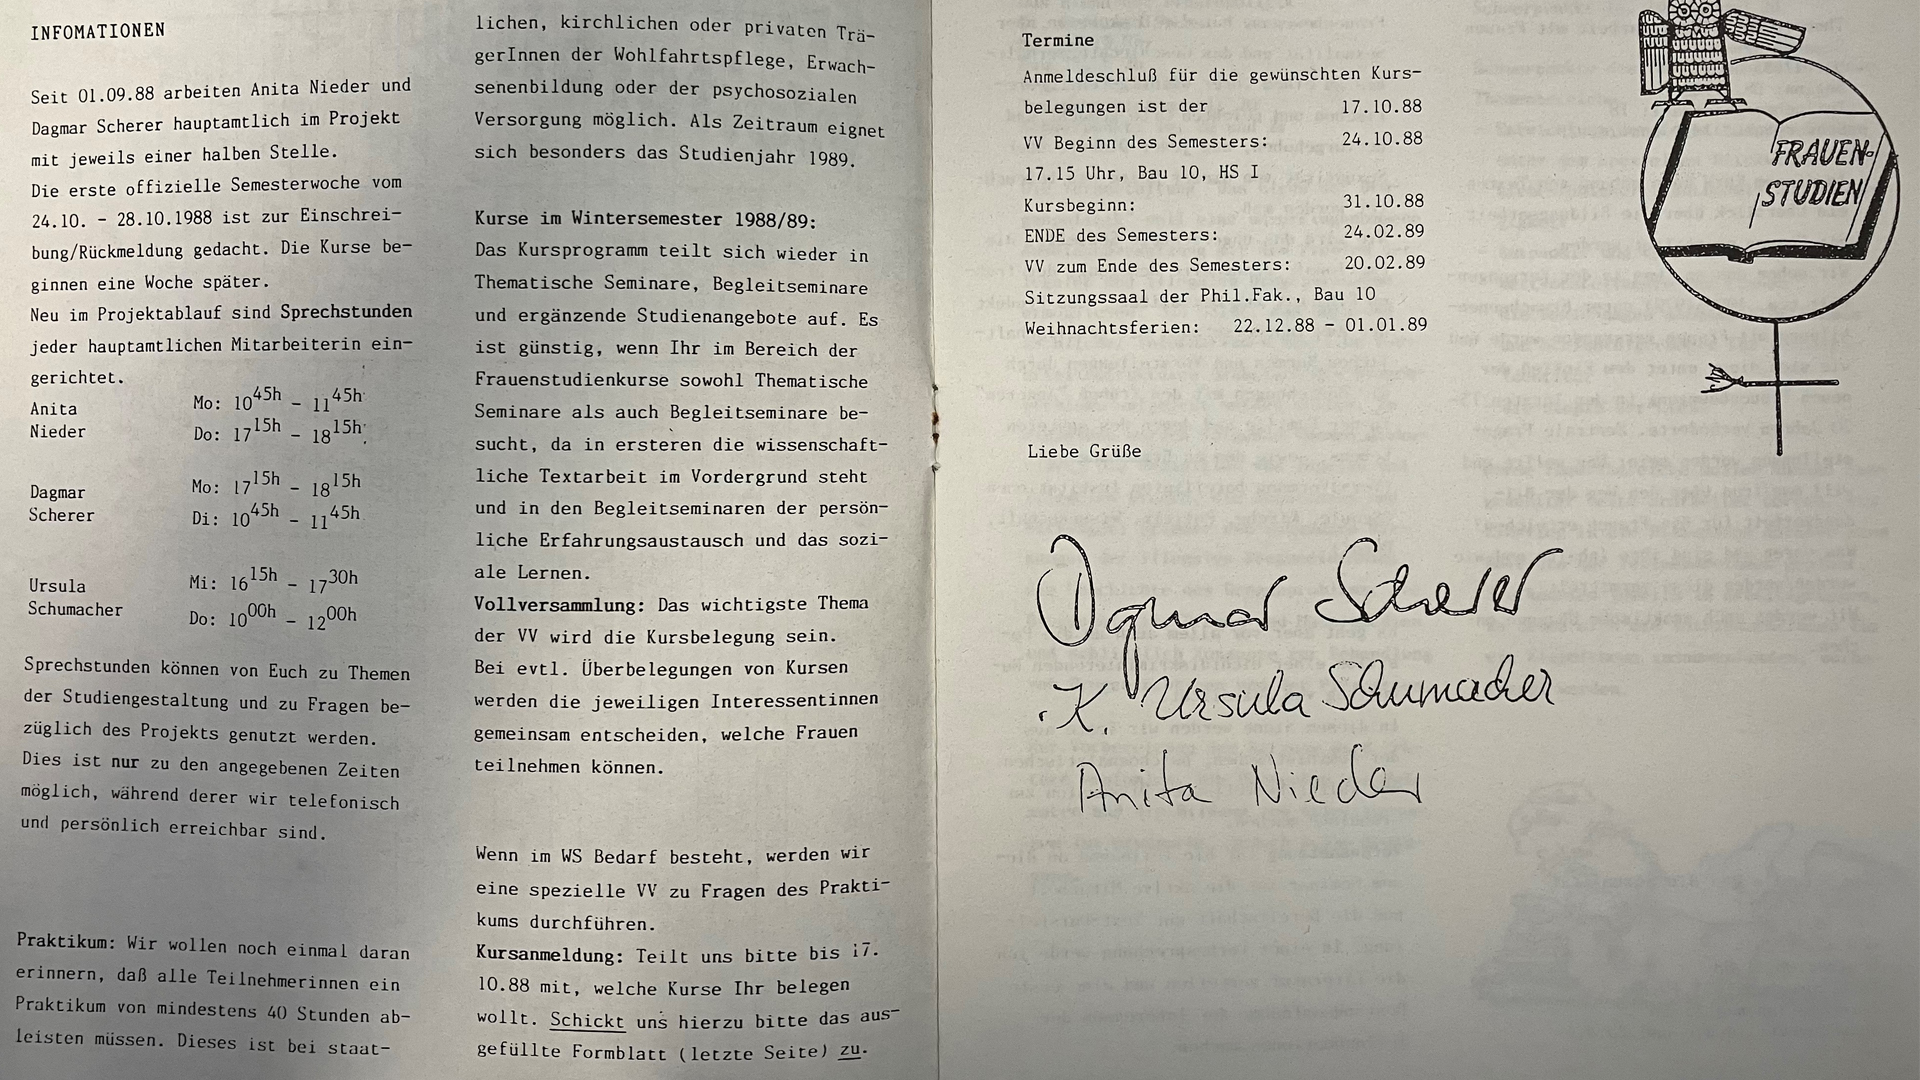 INFOMATIONEN
Seit 01.09.88 arbeiten Anita Nieder und
Dagmar Scherer hauptamtlich im Projekt
mit jeweils einer halben Stelle.
Die erste offizielle Semesterwoche vom
24.10. - 28.10.1988 ist zur Einschrei-
bung/Rückmeldung gedacht. Die Kurse be-
ginnen eine Woche später.
Neu im Projektablauf sind Sprechstunden
jeder hauptamtlichen Mitarbeiterin ein-
gerichtet.
Anita Mo: 10 45h - 11 45h
Nieder Do: 17 15h - 18 15h
Dagmar Mo: 17 15h - 18 15h
Scherer Di: 10 45h - 11 45h
Ursula Mi: 16 15h - 17 30h
Schumacher Do: 10 00h - 12 00h
Sprechstunden können von Euch zu Themen
der Studiengestaltung und zu Fragen be-
züglich des Projekts genutzt werden.
Dies ist nur zu den angegebenen Zeiten
möglich, während derer wir telefonisch
und persönlich erreichbar sind.
Praktikum: Wir wollen noch einmal daran
erinnern, daß alle Teilnehmerinnen ein
Praktikum von mindestens 40 Stunden ab-
leisten müssen. Dieses ist bei staat-
lichen, kirchlichen oder privaten Trä-
gerInnen der Wohlfahrtspflege, Erwach-
senenbildung oder der psychosozialen
Versorgung möglich. Als Zeitraum eignet
sich besonders das Studienjahr 1989.
Kurse im Wintersemester 1988/89:
Das Kursprogramm teilt sich wieder in
Thematische Seminare, Begleitseminare
und ergänzende Studienangebote auf. Es
ist günstig, wenn Ihr im Bereich der
Frauenstudienkurse sowohl Thematische
Seminare als auch Begleitseminare be-
sucht, da in ersteren die wissenschaft-
liche Textarbeit im Vordergrund steht
und in den Begleitseminaren der persön-
liche Erfahrungsaustausch und das sozi-
ale Lernen.
Vollversammlung: Das wichtigste Thema
der VV wird die Kursbelegung sein.
Bei evtl. Überbelegungen von Kursen
werden die jeweiligen Interessentinnen
gemeinsam entscheiden, welche Frauen
teilnehmen können.
Wenn im WS Bedarf besteht, werden wir
eine spezielle VV zu Fragen des Prakti-
kums durchführen.
Kursanmeldung: Teilt uns bitte bis 17.
10.88 mit, welche Kurse Ihr belegen
wollt. Schickt uns hierzu bitte das aus-
gefüllte Formblatt (letzte Seite) zu.
Termine
Anmeldeschluß für die gewünschten Kurs-
belegungen ist der 17.10.88
VV Beginn des Semesters: 24.10.88
17.15 Uhr, Bau 10, HS I
Kursbeginn: 31.10.88
ENDE des Semesters: 24.02.89
VV zum Ende des Semesters: 20.02.89
Sitzungssaal der Phil.Fak., Bau 10
Weihnachtsferien: 22.12.88 - 01.01.89
Liebe Grüße
Dagmar Scherer
K. Ursula Schumacher
Anita Nieder
FRAUEN-
STUDIEN